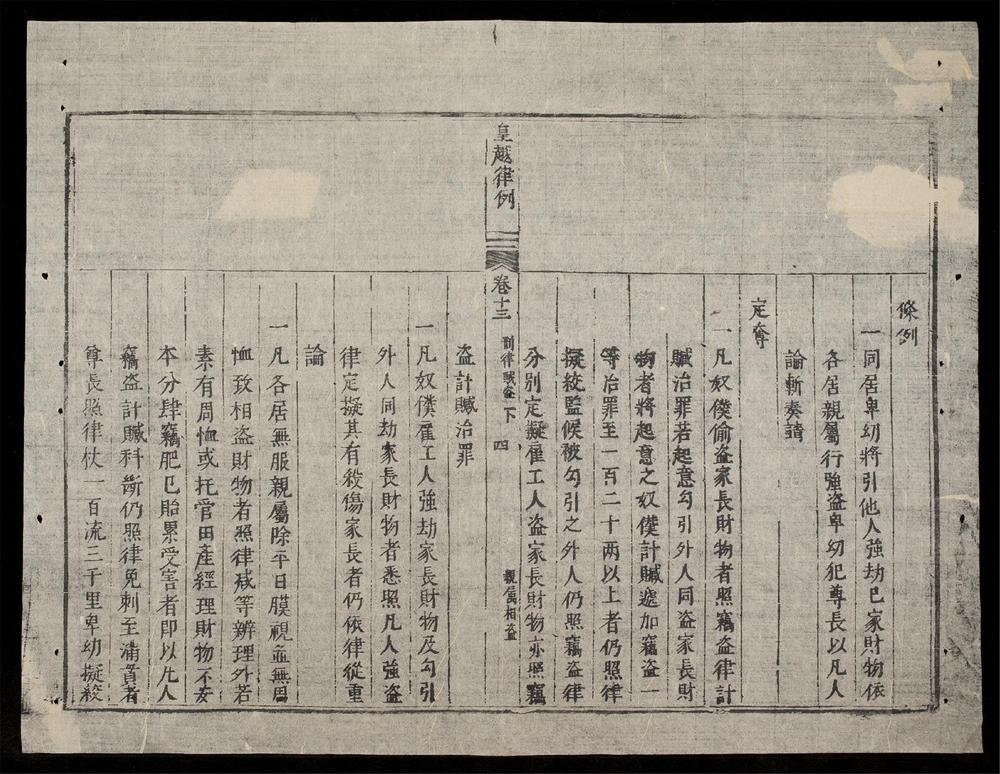 條例
一同居卑幼將引他人強劫巳家財物依
各居親屬行強盗卑幼犯尊長以凡人
論斬奏請
定奪
一凡奴僕偷盗家長財物者照竊盗律計
贓治罪若起意勾引外人同盗家長財
物者將起意之奴僕計贓遞加竊盗一
等治罪至一百二十兩以上者仍照律
擬絞監候被勾引之外人仍照竊盗律
分别定擬雇工人盗家長財物亦照竊
皇越律例
卷十三
刑律賊盗下
四
親屬相盗
盗計贓治罪
一凡奴僕雇工人強劫家長財物及勾引
外人同劫家長財物者悉照凡人強盗
律定擬其有殺傷家長者仍依律從重
論
一凡各居無服親屬除平日膜視並無周
恤致相盗財物者照律减等辨理外若
素有周恤或托管田産經理財物不安
本分肆竊肥巳貽累受害者即以凡人
竊盗計贓科斷仍照律免刺至滿貫者
尊長照律杖一百流三千里卑幼擬絞